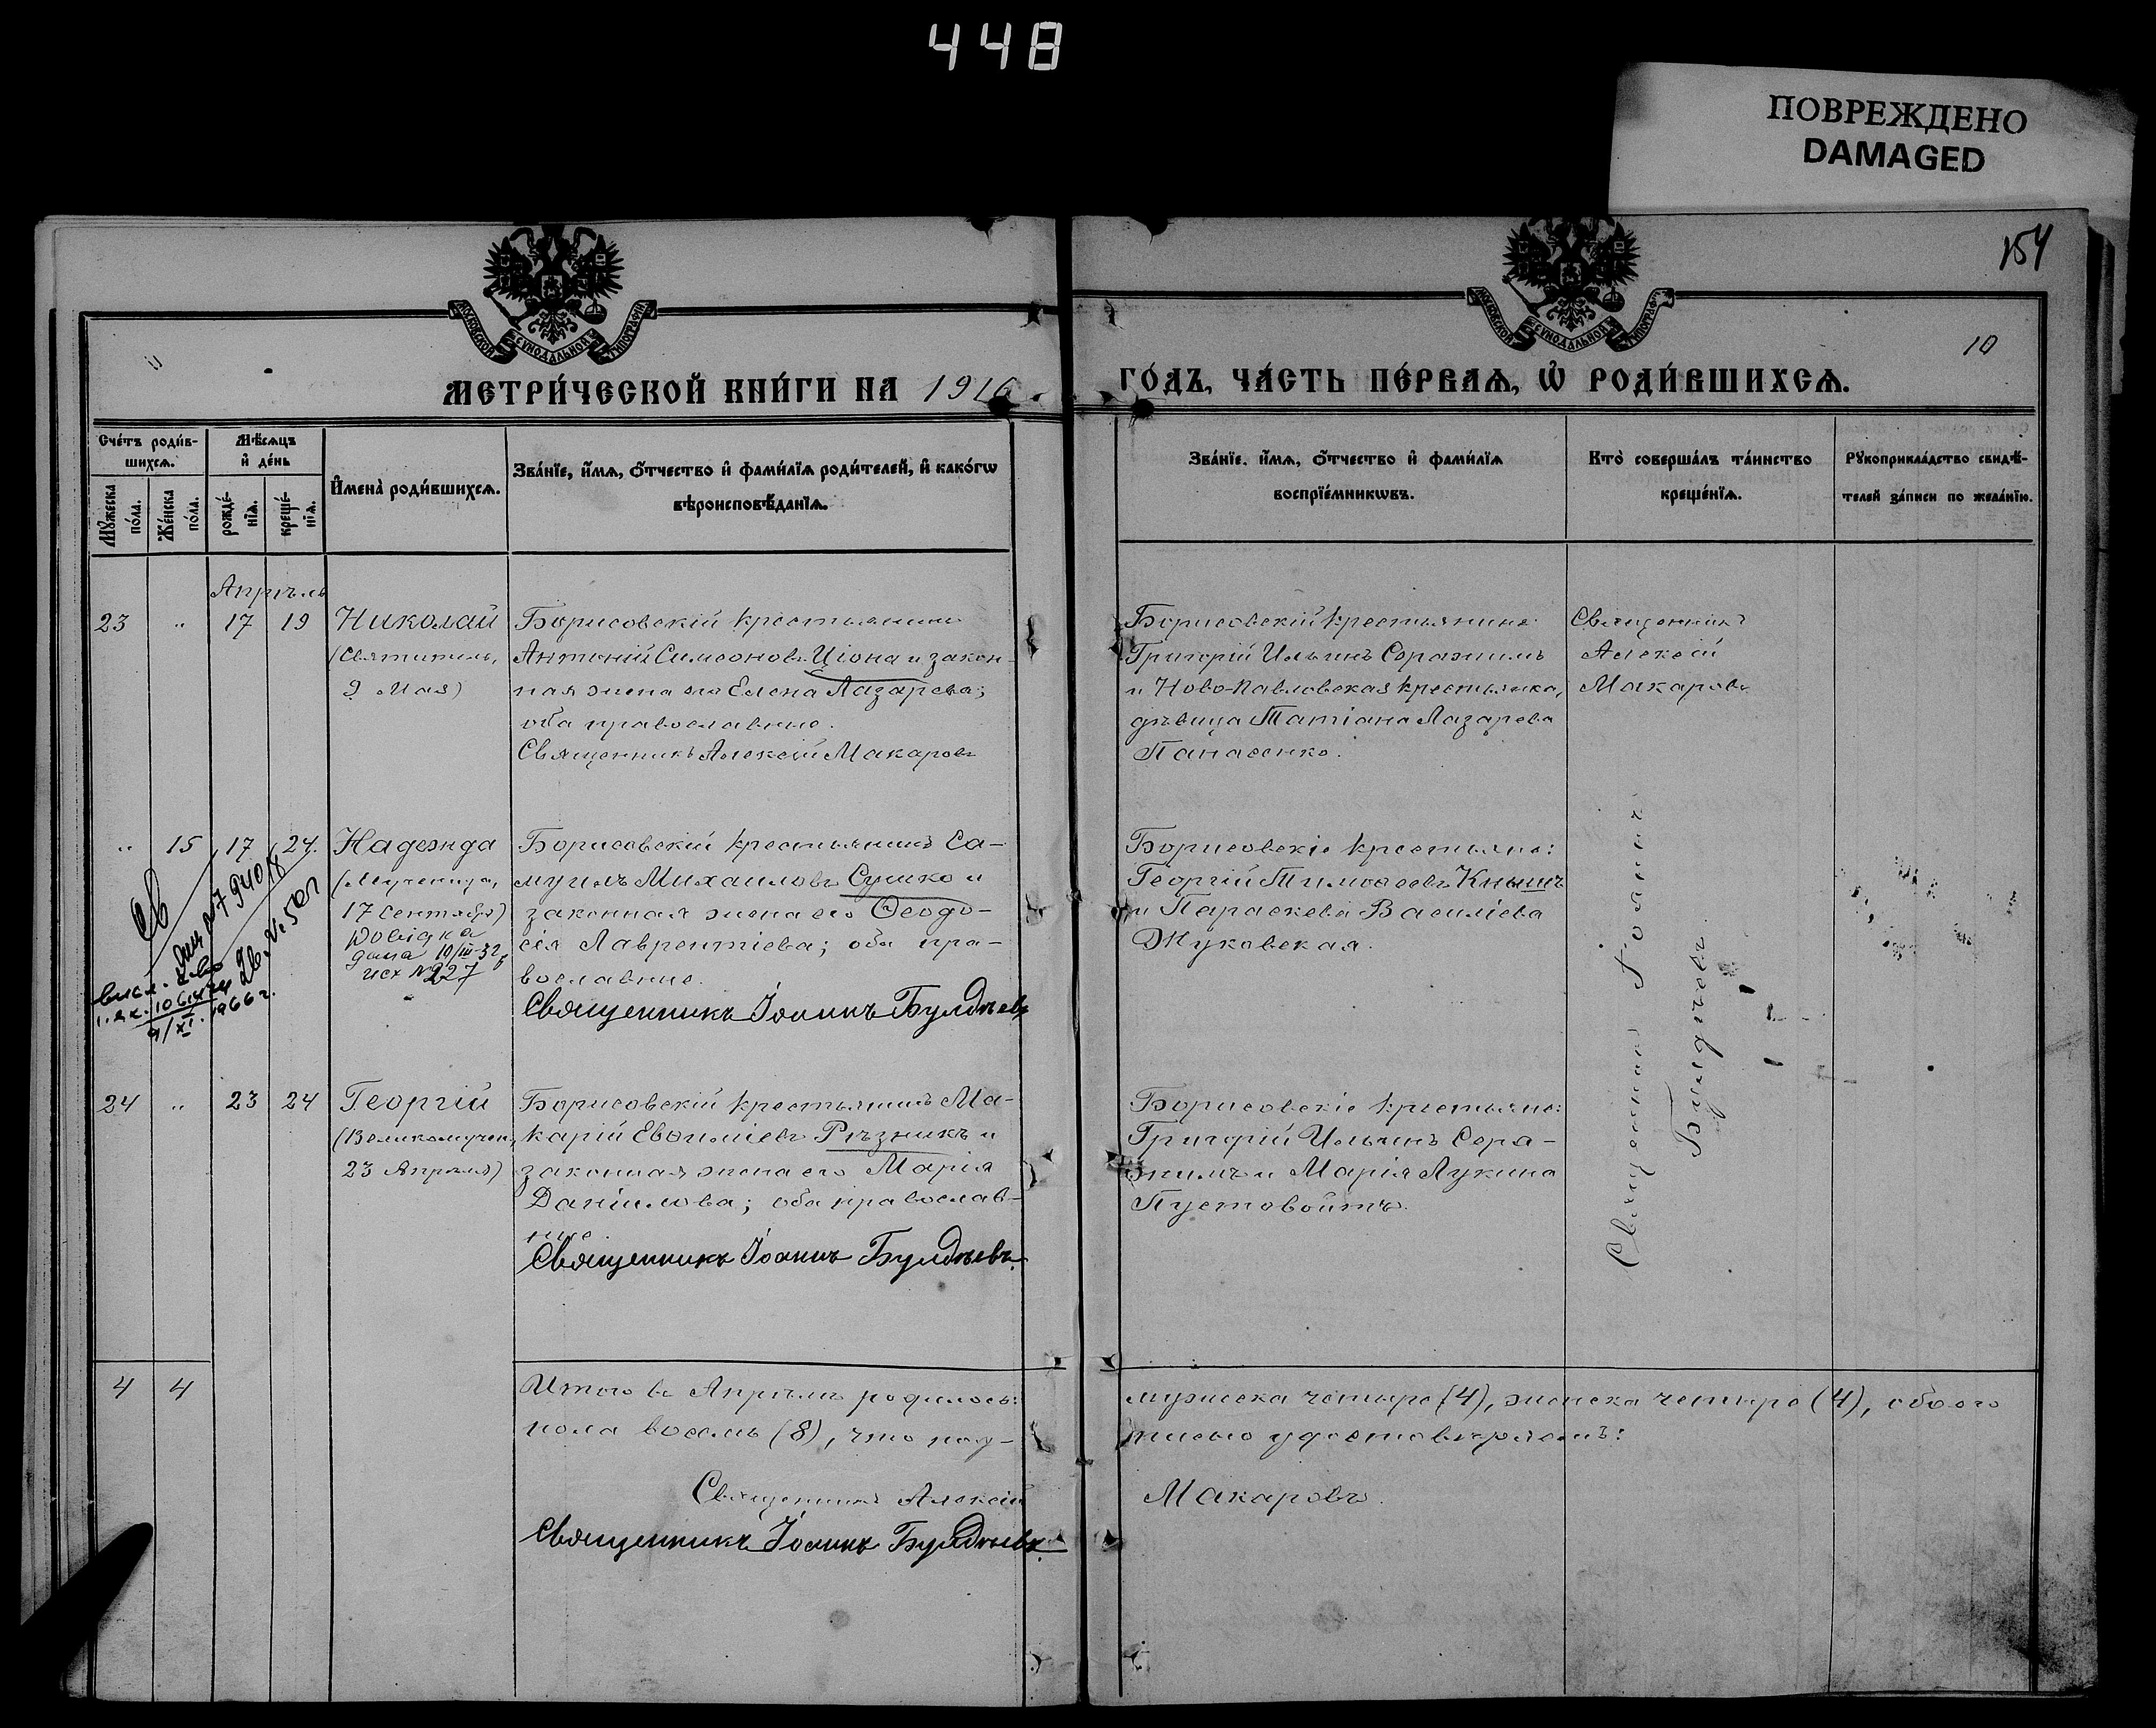 448
ПОВРЕЖДЕНО
DAMAGED
154
10
МОСКОВСКОЙ СУНОДАЛЬНОЙ ТИПОГРАФІИ
МОСКОВСКОЙ СУНОДАЛЬНОЙ ТИПОГРАФІИ
МЕТРИ́ЧЕСКОЙ КНИ́ГИ НА 1916
ГО́ДЪ, ЧА́СТЬ ПЕ́РВАѦ, Ѡ҆ РОДИ́ВШИХСѦ.
Сче́тъ роди́в-
шихсѧ.
Мѣ́сѧцъ
и҆ де́нь
Мꙋ́жеска
по́ла.
Же́нска
по́ла.
рожде́-
нїѧ.
креще́-
нїѧ.
И҆мена̀ роди́вшихсѧ.
Зва́нїе, и҆́мѧ, ѻ҆́тчество и҆ фами́лїѧ роди́телей, и҆ како́гѡ
вѣроисповѣ́данїѧ.
Зва́нїе, и҆́мѧ, ѻ҆́тчество и҆ фами́лїѧ
воспрїе́мникѡвъ.
Кто̀ соверша́лъ та́инство
креще́нїѧ.
Рꙋкоприкла́дство свидѣ́-
телей за́писи по жела́нїю.
Апрѣль
23 " 17 19
Николай
(Святитель,
9 Мая)
Борисовскій крестьянинъ
Антоній Симеоновъ Ціона и закон-
ная жена его Елена Лазарева;
оба православные.
Священникъ Алексій Макаровъ
Борисовскій крестьянинъ
Григорій Ильинъ Серажимъ
и Ново-Павловская крестьянка,
дѣвица Татіана Лазарева
Панасенко.
Священникъ
Алексій
Макаровъ
" 15 17 24.
Надежда
(Мученица,
17 Сентября)
Довідка
дана 10/III-32 р
исх № 227
1966 г.
Борисовскій крестьянинъ Са-
муилъ Михаиловъ Сушко и
законная жена его Ѳеодо-
сія Лаврентіева; оба пра-
вославные.
Священникъ Іоаннъ Булдѣевъ
Борисовскіе крестьяне:
Георгій Тимоѳеевъ Кнышъ
и Параскева Василіева
Жуковская.
Священникъ Іоаннъ
Булдѣевъ
24 " 23 24
Георгій
(Великомучен.,
23 Апрѣля)
Борисовскій крестьянинъ Ма-
карій Евѳиміевъ Рѣзникъ и
законная жена его Марія
Даніилова; оба православ-
ные.
Священникъ Іоаннъ Булдѣевъ.
Борисовскіе крестьяне:
Григорій Ильинъ Сера-
жимъ и Марія Лукина
Пустовойтъ.
4 4
Итого въ Апрѣлѣ родилось: мужеска четыре (4), женска четыре (4), обоего
пола восемь (8), что под- писью удостовѣряемъ:
Священникъ Алексій Макаровъ.
Священникъ Іоаннъ Булдѣевъ.